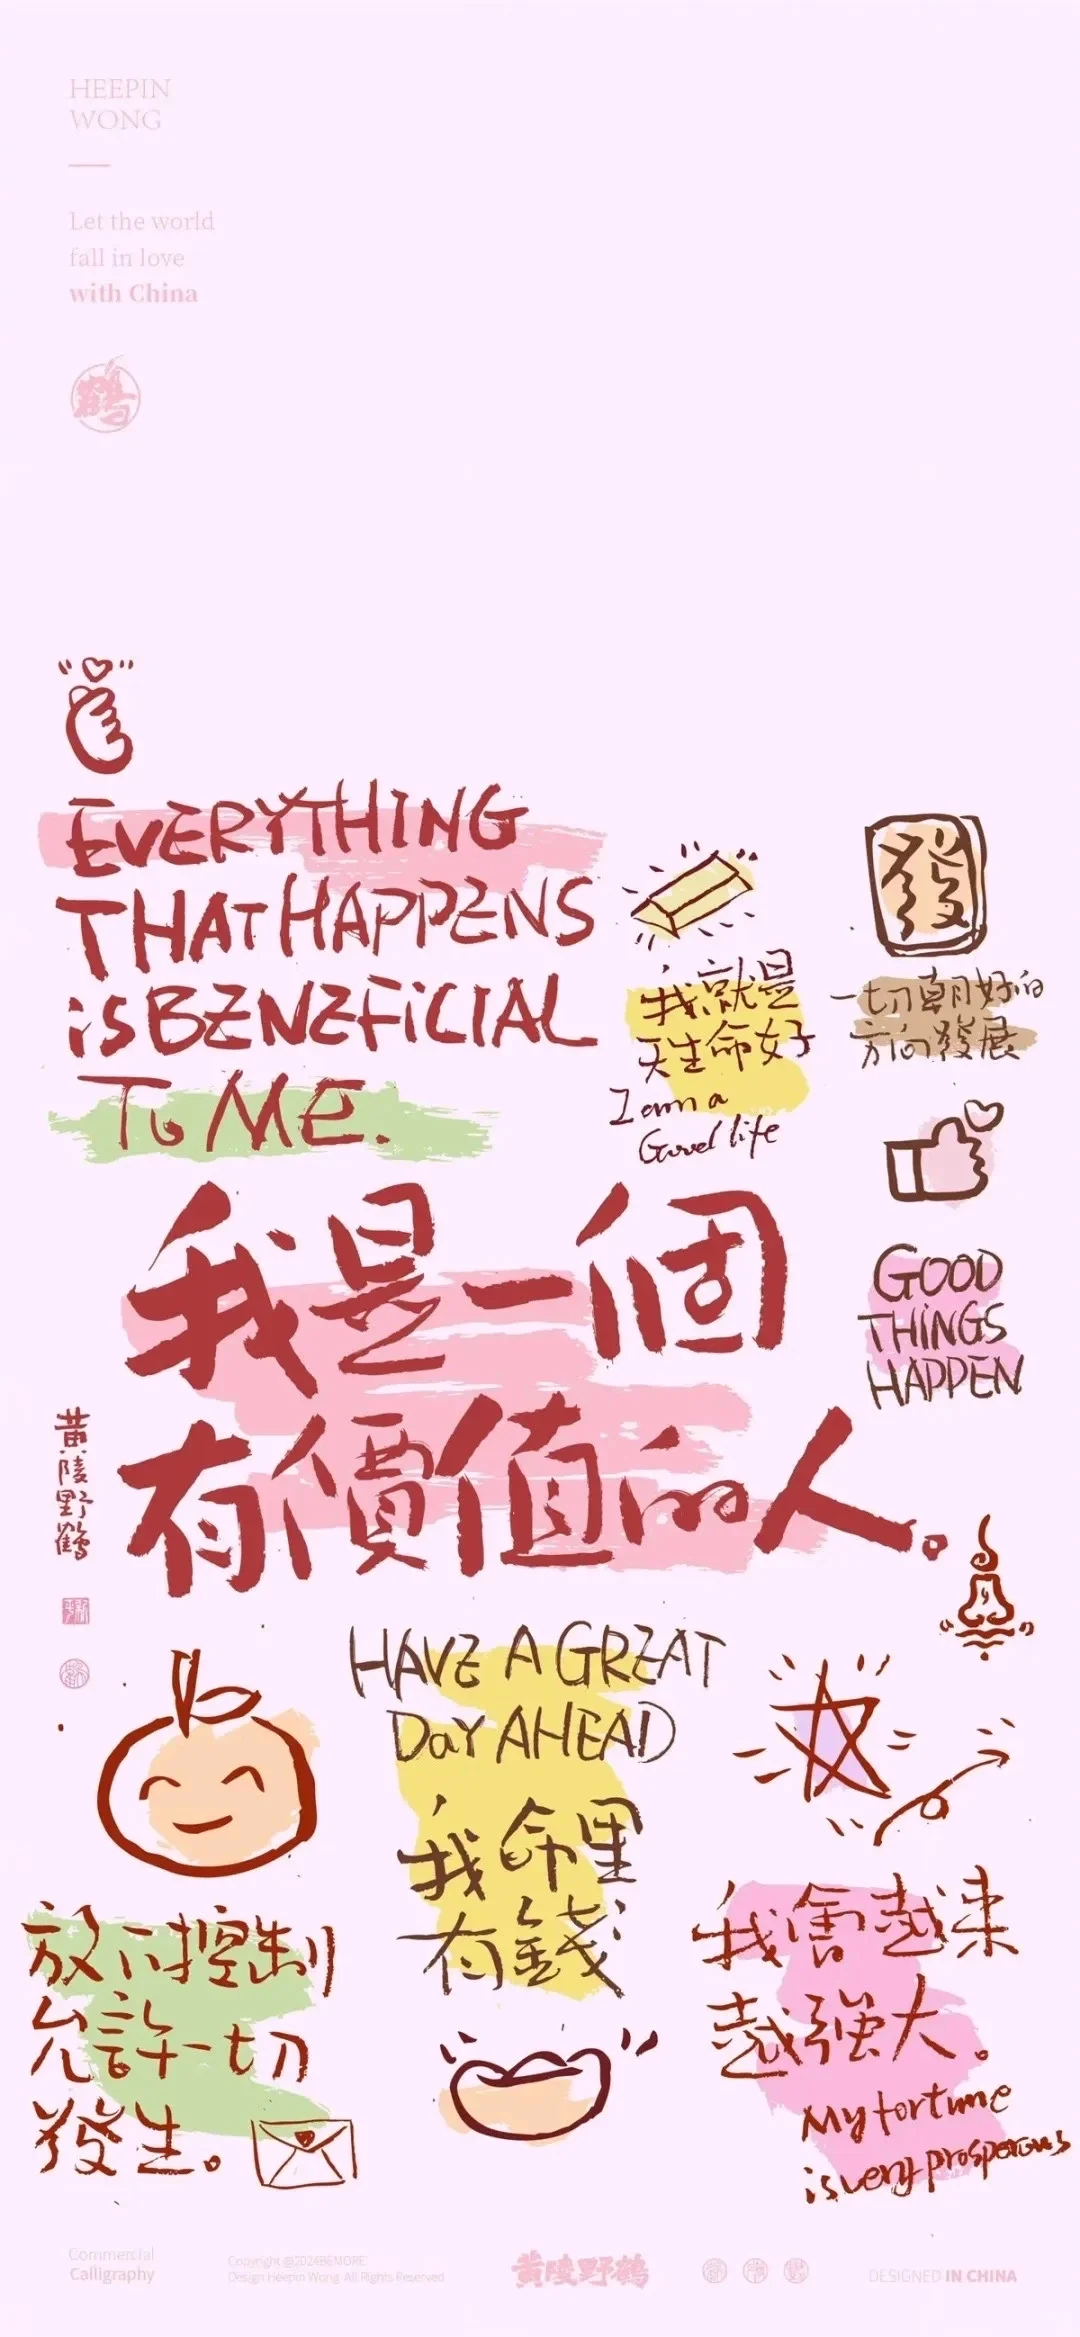 HEEPIN
WONG
Let the world
fall in love
with China
鶴
EVERYTHING
THAT HAPPENS
iS BENEFiCIAL
To ME.
我就是
天生命好
I am a
Good life
發
一切朝好的
方向發展
GOOD
THiNGS
HAPPEN
我是一個
有價值的人。
黄陵野鶴
HAVE A GREAT
DaY AHEAD
我命里
有錢
放下控制
允許一切
發生。
我會越来
越强大。
My fortune
is very prosperous
Commercial
Calligraphy
Copyright @2024BEMORE
Design Heepin Wong. All Rights Reserved
黄陵野鶴
DESIGNED IN CHINA